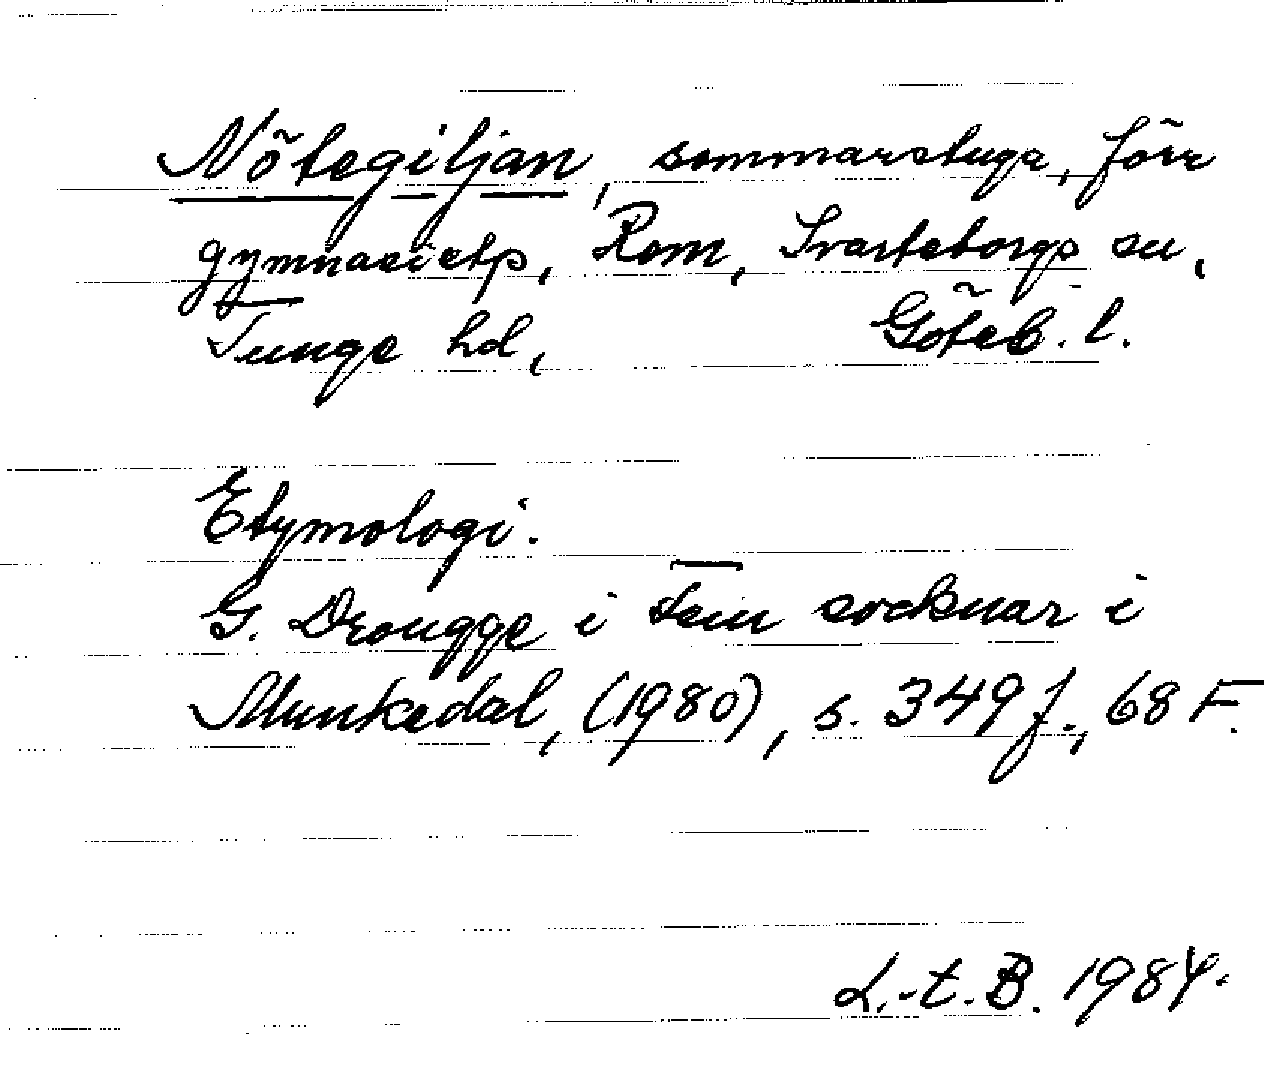 Nötegiljan, sommarstuga, förr
gymnasietp, Rom, Svarteborgs sn,
Tunge hd, Göteb. l.
Etymologi.
G. Drougge i Fem socknar i
Munkedal, (1980), s. 349 f., 68 F.
L.-t. B. 1984.